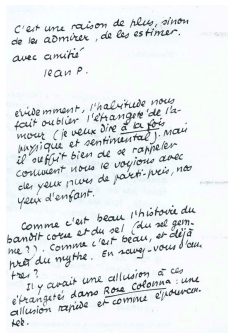 C'est une raison de plus, sinon
de les admirer, de les estimer.
avec amitié
Jean P.
évidemment, l'habitude nous
fait oublier l'étrangeté de l'a-
mour (je veux dire à la fois
physique et sentimental). Mais
il suffit bien de se rappeler
comment nous le voyions avec
des yeux purs de parti-pris, nos
yeux d'enfant.
Comme c'est beau l'histoire du
bandit corse et du sel (du sel gem-
me ?). Comme c'est beau, et déjà
près du mythe. En savez-vous d'au-
tres ?
Il y avait une allusion à ces
étrangetés dans Rose Colonna : une
allusion rapide et comme épouvan-
tée.